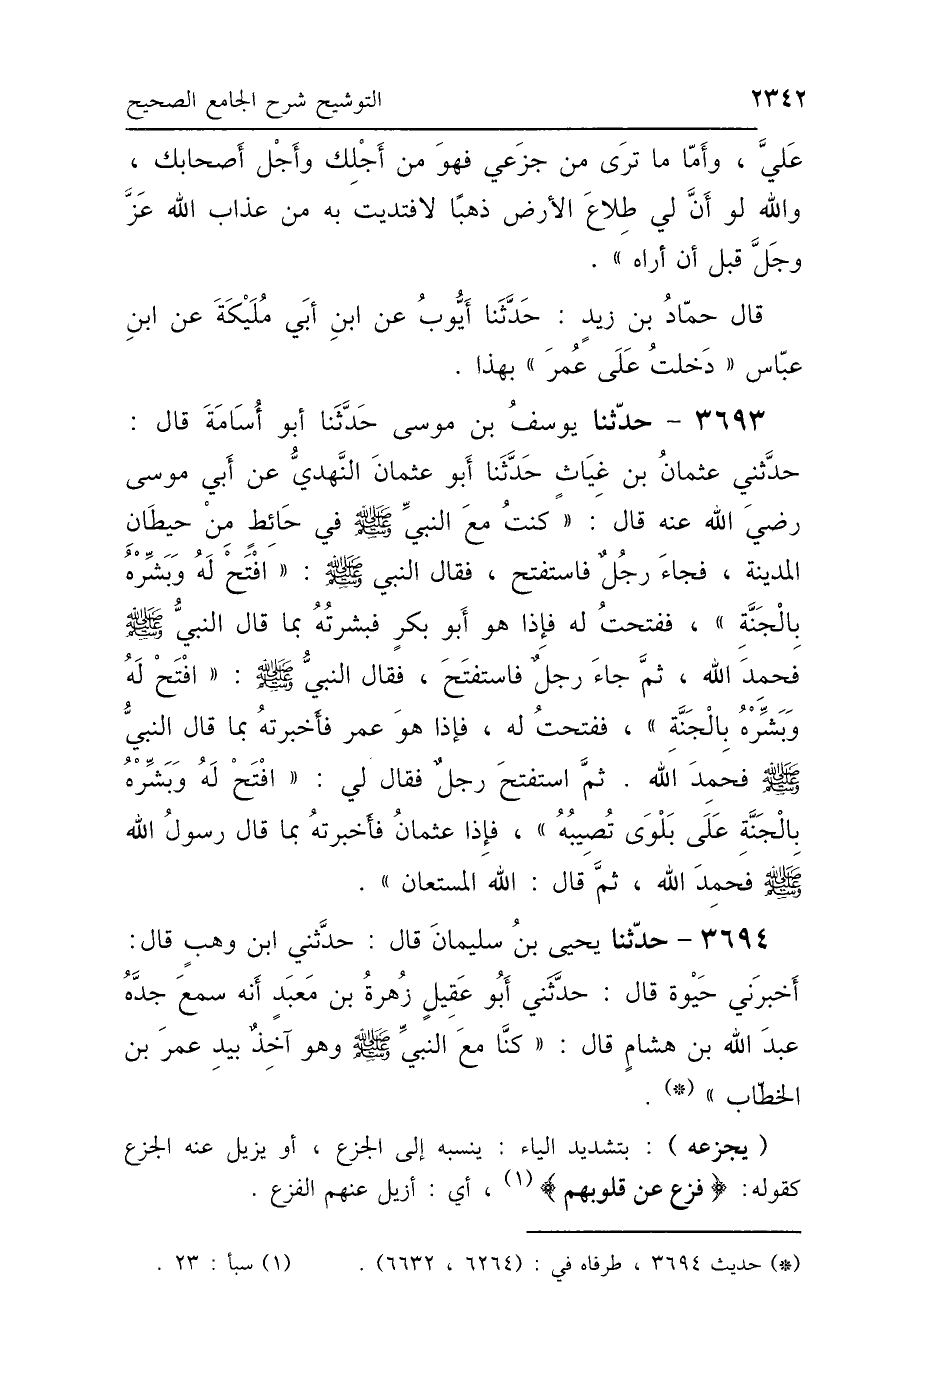 ٢٣٤٢ التوشيح شرح الجامع الصحيح
عَليَّ ، وأَمّا ما ترَى من جزَعي فهوَ من أَجْلِك وأَجْل أَصحابك ،
والله لو أَنَّ لي طِلاعَ الأرض ذهبًا لافتديت به من عذاب الله عَزَّ
وجَلَّ قبل أن أراه » .
قال حمّادُ بن زيدٍ : حَدَّثَنا أَيُّوبُ عن ابنِ أبَي مُلَيْكَةَ عن ابنِ
عبّاس « دَخلتُ عَلَى عُمرَ » بهذا .
٣٦٩٣ - حدّثنا يوسفُ بن موسى حَدَّثَنا أبو أُسَامَةَ قال :
حدَّثني عثمانُ بن غِيَاثٍ حَدَّثَنا أَبو عثمانَ النَّهديُّ عن أَبي موسى
رضيَ الله عنه قال : « كنتُ معَ النبيِّ ﷺ في حَائِطٍ مِنْ حيطَانِ
المدينة ، فجاءَ رجُلٌ فاستفتح ، فقال النبي ﷺ : « افْتَحْ لَهُ وَبَشِّرْهُ
بِالْجَنَّةِ » ، ففتحتُ له فإذا هو أَبو بكرٍ فبشرتُهُ بما قال النبيُّ ﷺ
فحمِدَ الله ، ثمَّ جاءَ رجلٌ فاستفتَحَ ، فقال النبيُّ ﷺ : « افْتَحْ لَهُ
وَبَشِّرْهُ بِالْجَنَّةِ » ، ففتحتُ له ، فإذا هوَ عمر فأَخبرتهُ بما قال النبيُّ
ﷺ فحمِدَ الله . ثمَّ استفتحَ رجلٌ فقال لي : « افْتَحْ لَهُ وَبَشِّرْهُ
بِالْجَنَّةِ عَلَى بَلْوَى تُصِيبُهُ » ، فإذا عثمانُ فأَخبرتهُ بما قال رسولُ الله
ﷺ فحمِدَ الله ، ثمَّ قال : الله المستعان » .
٣٦٩٤ - حدّثنا يحيى بنُ سليمانَ قال : حدَّثني ابن وهبٍ قال:
أَخبرَني حَيْوة قال : حدَّثَني أَبُو عَقِيلٍ زُهرةُ بن مَعبَدٍ أَنه سمعَ جدَّهُ
عبدَ الله بن هشامٍ قال : « كنَّا معَ النبيِّ ﷺ وهو آخِذٌ بيدِ عمرَ بن
الخطّاب » (*) .
( يجزعه ) : بتشديد الياء : ينسبه إلى الجزع ، أو يزيل عنه الجزع
كقوله: ﴿ فزع عن قلوبهم ﴾ (١) ، أي : أزيل عنهم الفزع .
(*) حديث ٣٦٩٤ ، طرفاه في : (٦٢٦٤ ، ٦٦٣٢) . (١) سبأ : ٢٣ .